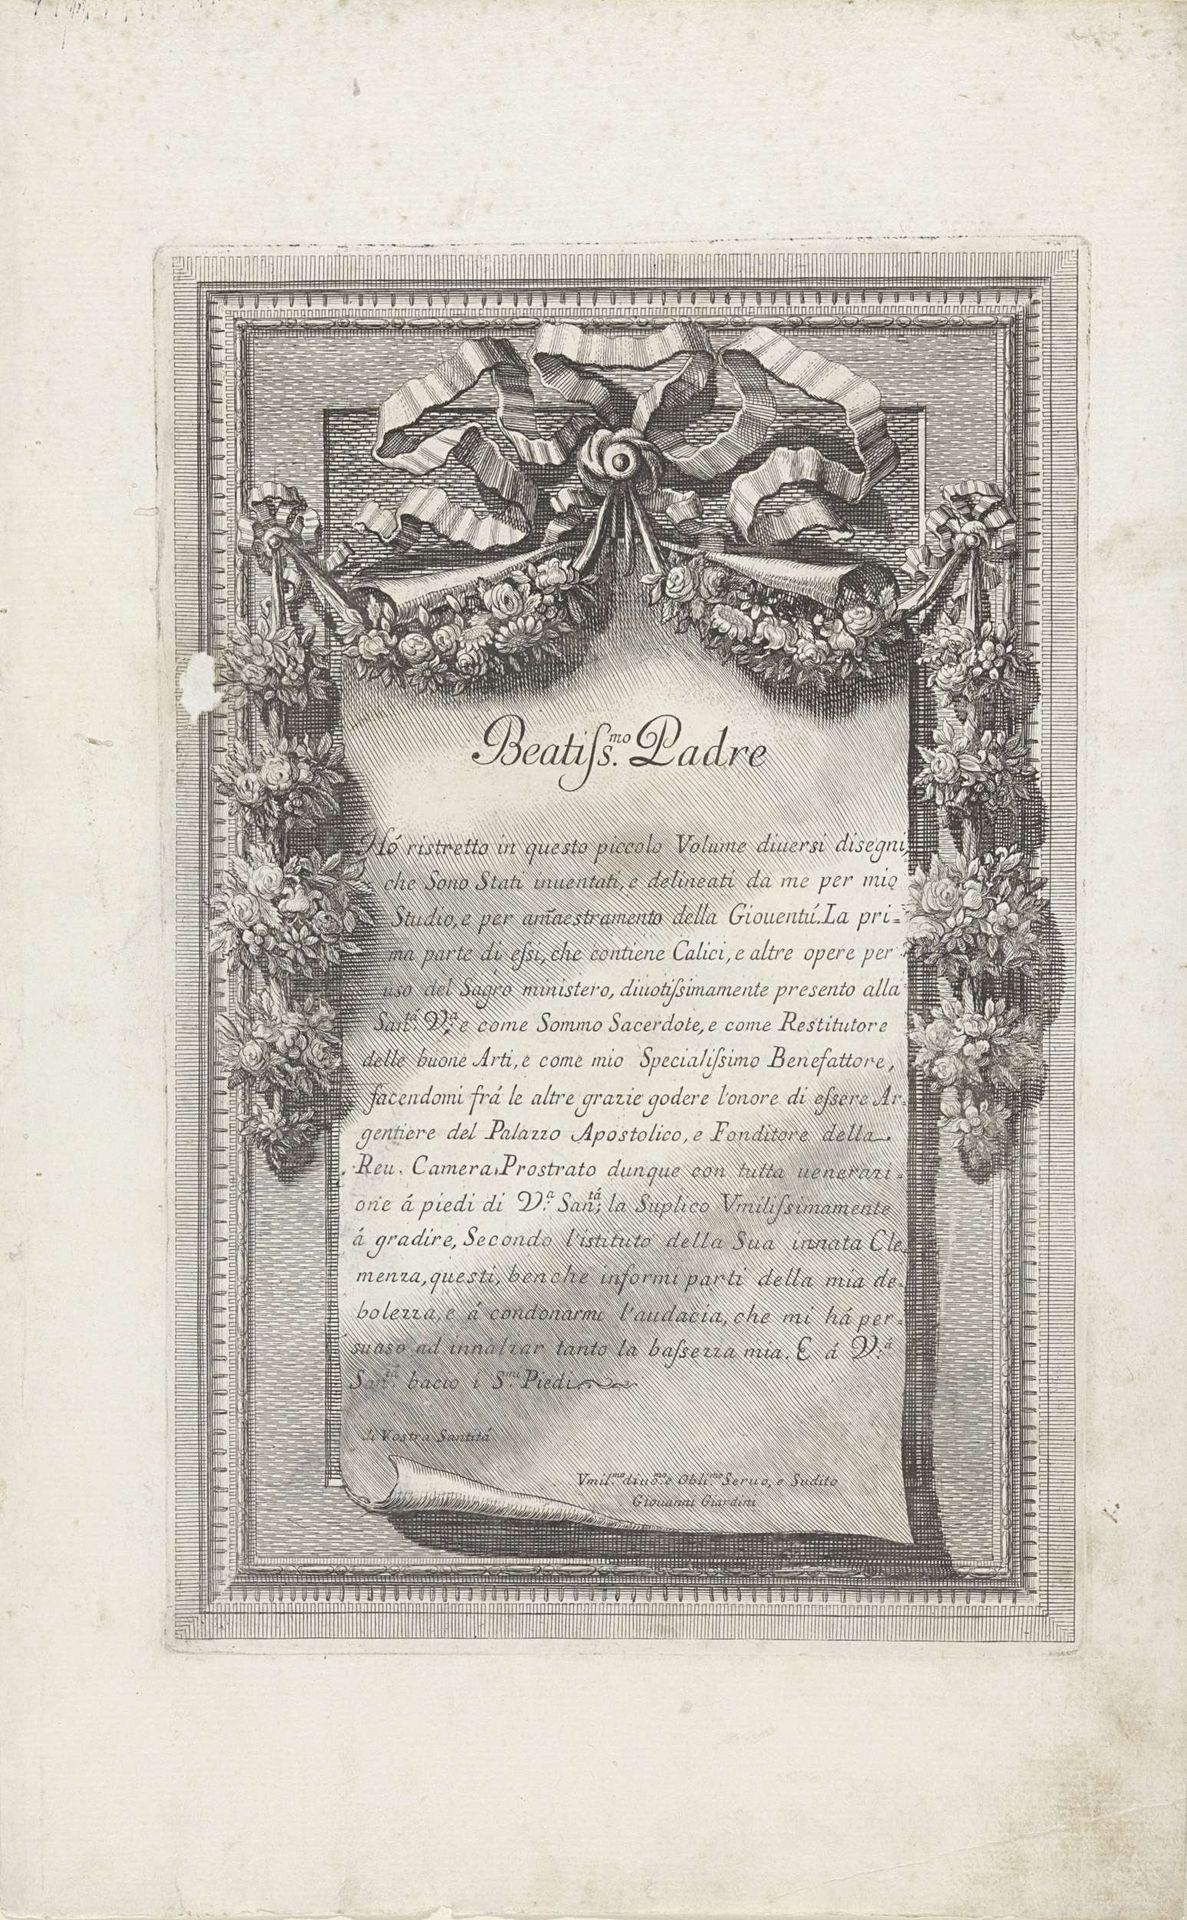 Beatiſs.mo Padre
Hó ristretto in questo piccolo Volume diuersi disegni,
che Sono Stati inuentati, e delineati da me per mio
Studio, e per am̃aestramento della Giouentú. La pri=
ma parte di eſsi, che contiene Calici, e altre opere per
uso del Sagro ministero, diuotiſsimamente presento alla
San.tá V.a, e come Sommo Sacerdote, e come Restitutore
delle buone Arti, e come mio Specialiſsimo Benefattore,
facendomi frá le altre grazie godere l'onore di eſsere Ar-
gentiere del Palazzo Apostolico, e Fonditore della
Reu. Camera. Prostrato dunque con tutta uenerazi-
one á piedi di V.a San.tá; la Suplico Vmiliſsimamente
á gradire, Secondo l'istituto della Sua innata Cle-
menza, questi, benche informi parti della mia de-
bolezza, e á condonarmi l'audacia, che mi há per-
suaso ad innalzar tanto la baſsezza mia. E á V.a
San.tá bacio i S.mi Piedi
di Vostra Santitá
Vmil.mo diuo.mo e Obli.mo Seruo, e Sudito
Giouanni Giardini